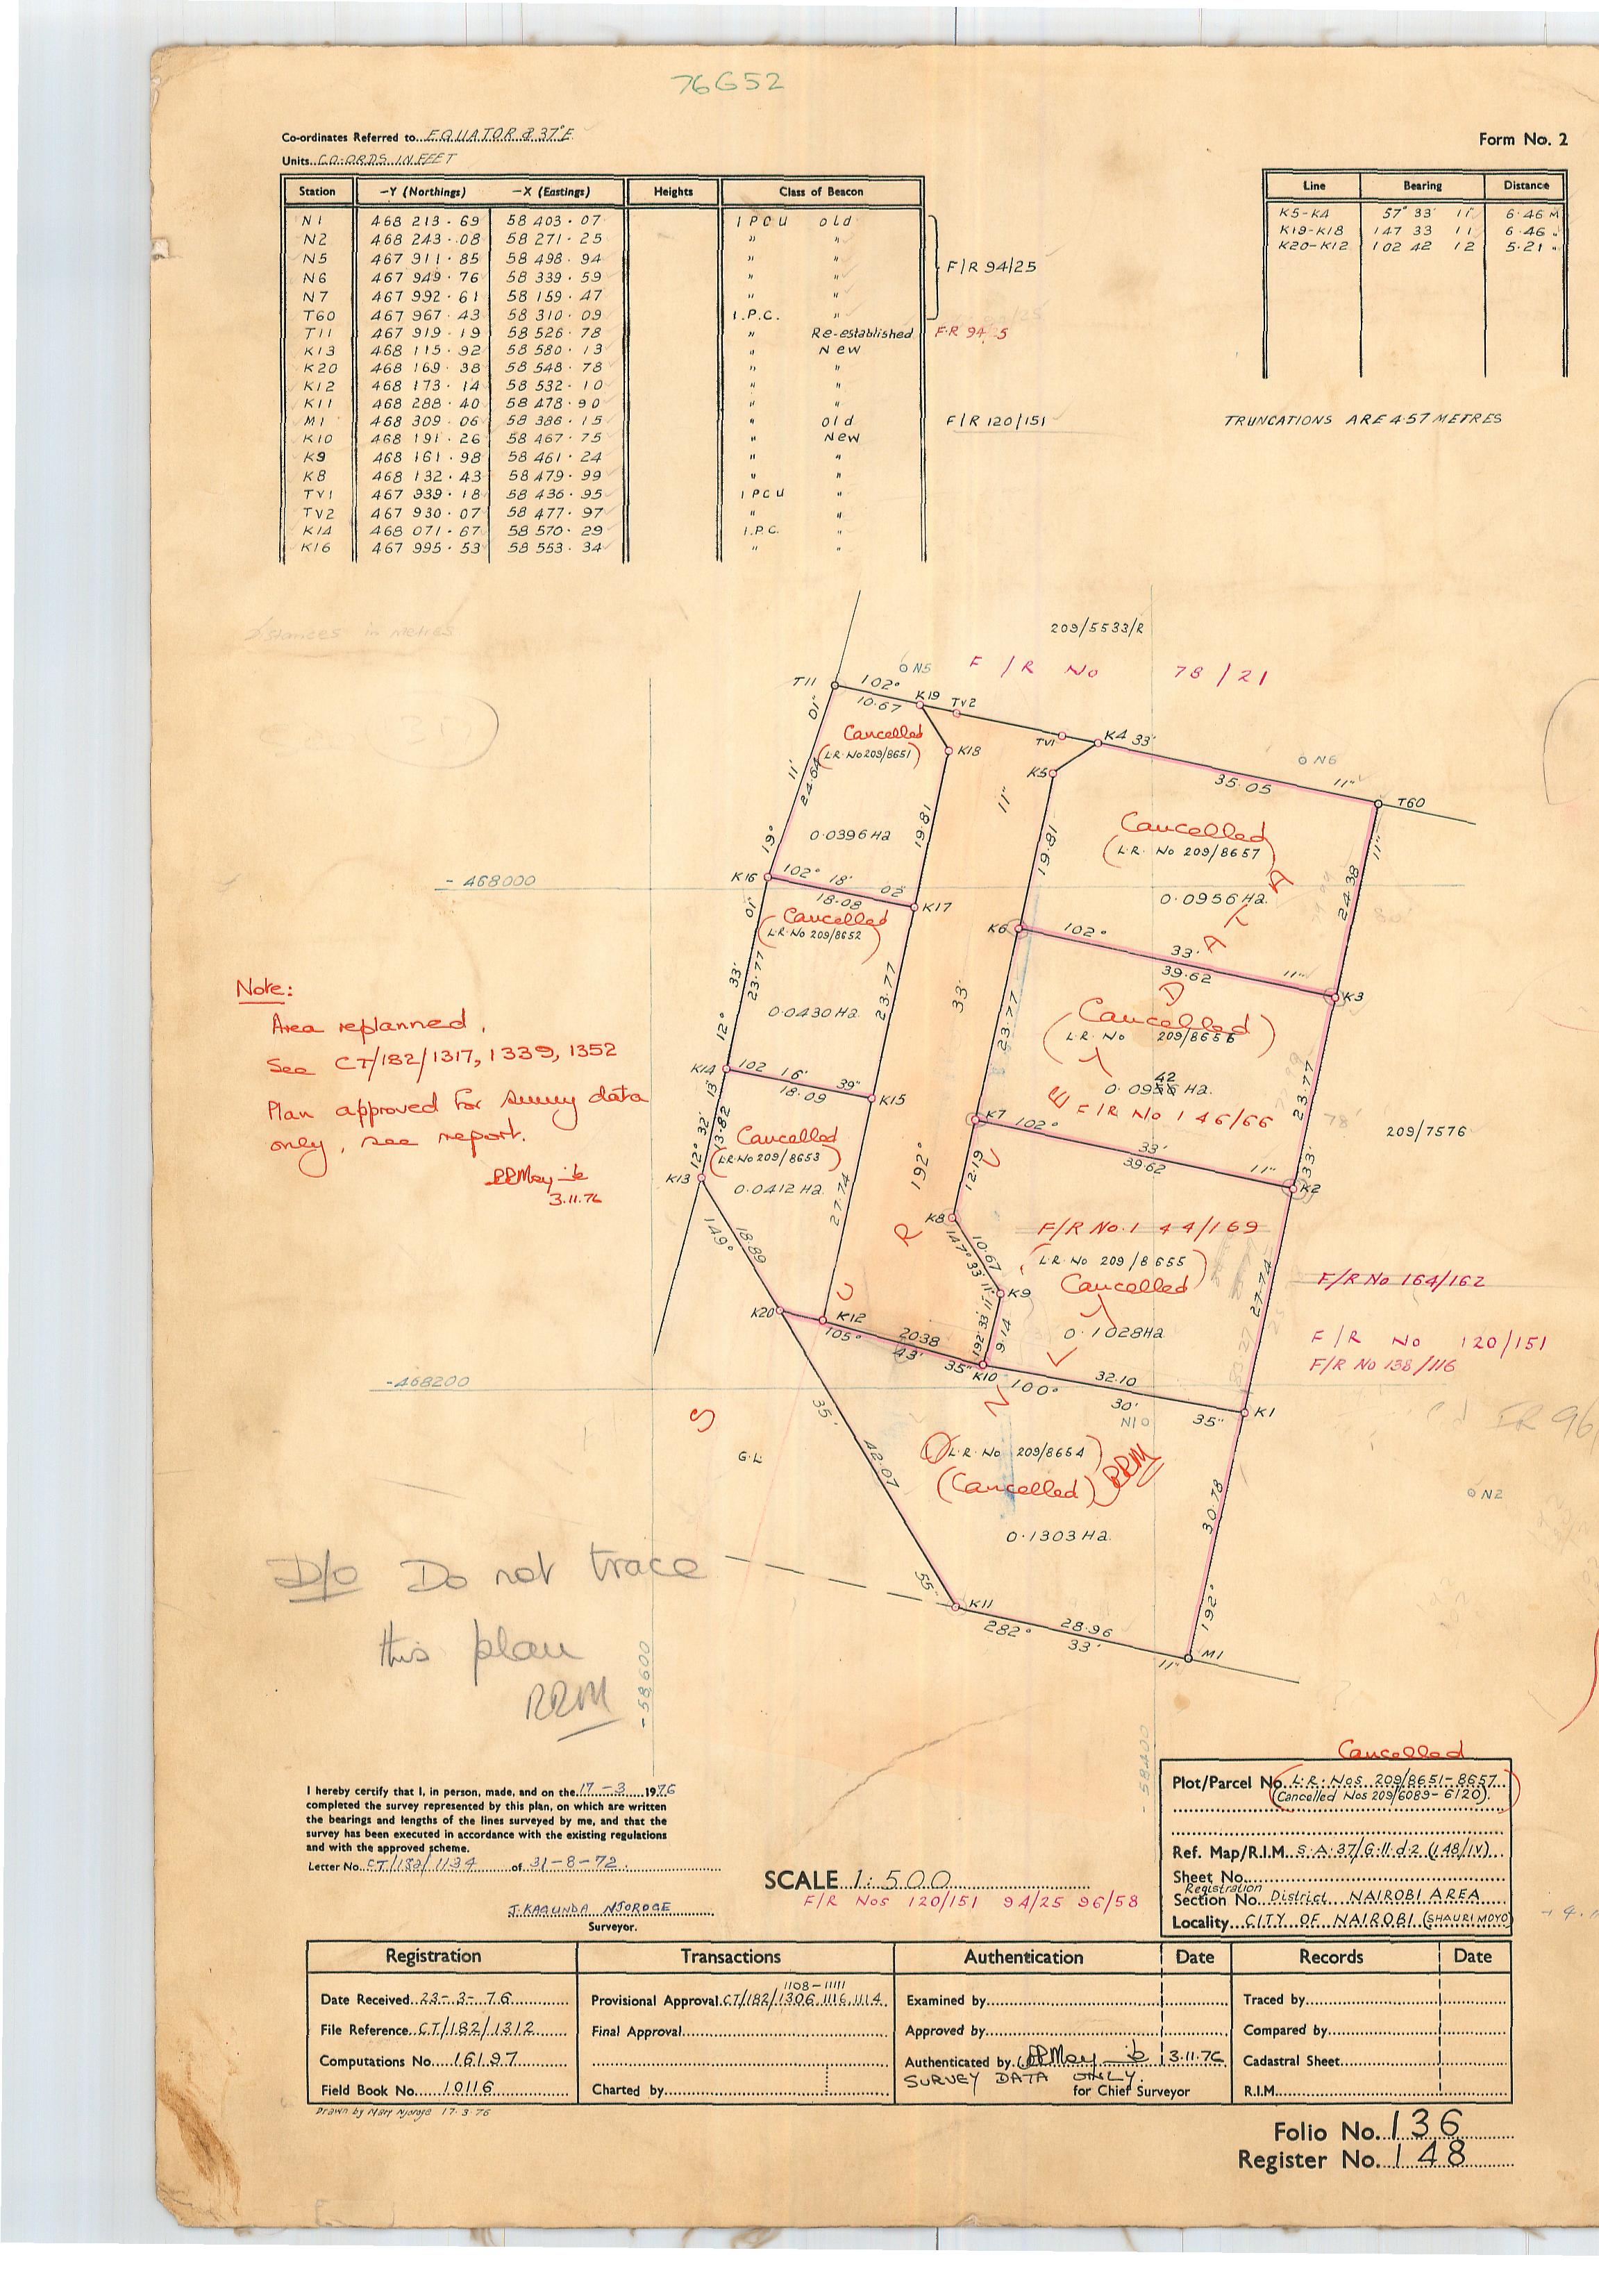 76G52
Co-ordinates Referred to EQUATOR & 37°E
Units CO-ORDS IN FEET
Form No. 2
Station -Y (Northings) -X (Eastings) Heights Class of Beacon
N1 468 213.69 58 403.07 IPCU old
N2 468 243.08 58 271.25 " "
N5 467 911.85 58 498.94 " "
N6 467 949.76 58 339.59 " "
N7 467 992.61 58 159.47 " "
T60 467 967.43 58 310.09 I.P.C. "
T11 467 919.19 58 526.78 " Re-established
K13 468 115.92 58 580.13 " New
K20 468 169.38 58 548.78 " "
K12 468 173.14 58 532.10 " "
K11 468 288.40 58 478.90 " "
M1 468 309.06 58 386.15 " old
K10 468 191.26 58 467.75 " New
K9 468 161.98 58 461.24 " "
K8 468 132.43 58 479.99 " "
TV1 467 939.18 58 436.95 IPCU "
TV2 467 930.07 58 477.97 " "
K14 468 071.67 58 570.29 I.P.C. "
K16 467 995.53 58 553.34 " "
F/R 94/25
F/R 120/151
Line Bearing Distance
K5-K4 57° 33' 11" 6.46 M
K19-K18 147 33 11 6.46 "
K20-K12 102 42 12 5.21 "
TRUNCATIONS ARE 4.57 METRES
Distances in metres
209/5533/R
F/R No 78/21
N5
T11 102° K19 TV2
10.67
TV1 K4 33'
35.05 11"
N6
T60
01" 11' 19°
24.64
Cancelled
(L.R. No 209/8651)
0.0396 Ha
K18
19.81
K5
11"
19.81
Cancelled
(L.R. No 209/8657)
0.0956 Ha.
11"
24.38
K16 102° 18' 02"
18.08
K17
- 468000
01" 33' 12°
23.77
Cancelled
(L.R. No 209/8652)
0.0430 Ha
23.77
33'
K6 102° 33' 11"
39.62
K3
23.77
Cancelled
(L.R. No 209/8656)
42
0.09 Ha.
23.77
F/R No 146/66
209/7576
Note:
Area replanned,
See CT/182/1317, 1339, 1352
Plan approved for survey data
only, see report.
3.11.76
K14 102 16' 39"
18.09
K15
13" 32' 12°
13.82
Cancelled
(L.R. No 209/8653)
0.0412 Ha.
27.74
192°
K7 102° 33' 11"
39.62
K2
33'
12.19
K13
149°
18.89
K8
147° 33' 11"
10.67
F/R No. 144/169
(L.R. No 209/8655)
Cancelled
0.1028 Ha
27.74
K9
192° 33' 11"
9.14
F/R No 164/162
F/R No 120/151
F/R No 138/116
K20 K12
105° 43' 35"
20.38
K10 100° 30' 35"
32.10
K1
-468200
N1
35' 55"
42.07
G.L
L.R. No 209/8654
(Cancelled) RRM
0.1303 Ha.
30.78
192°
N2
K11
282° 33' 11"
28.96
M1
SURVEY DATA
D/O Do not trace
this plan
RRM
-58,600
-58400
I hereby certify that I, in person, made, and on the 17-3 1976
completed the survey represented by this plan, on which are written
the bearings and lengths of the lines surveyed by me, and that the
survey has been executed in accordance with the existing regulations
and with the approved scheme.
Letter No. CT/182/1134 of 31-8-72.
J. KAGUNDA NJOROGE
Surveyor.
SCALE 1:500
F/R Nos 120/151 94/25 96/58
Cancelled
Plot/Parcel No. L.R. Nos 209/8651-8657
(Cancelled Nos 209/6089-6120).
Ref. Map/R.I.M. S.A.37/G.11.d.2 (148/IV)
Sheet No.
Registration
Section No. District NAIROBI AREA
Locality CITY OF NAIROBI (SHAURI MOYO)
Registration Transactions Authentication Date Records Date
1108-1111
Date Received 23-3-76 Provisional Approval CT/182/1306, 1116, 1114 Examined by Traced by
File Reference CT/182/1312 Final Approval Approved by Compared by
Computations No. 16197 Authenticated by 3.11.76 Cadastral Sheet
SURVEY DATA ONLY.
Field Book No. 10116 Charted by for Chief Surveyor R.I.M.
Drawn by Mary Njoroge 17.3.76
Folio No. 136
Register No. 148